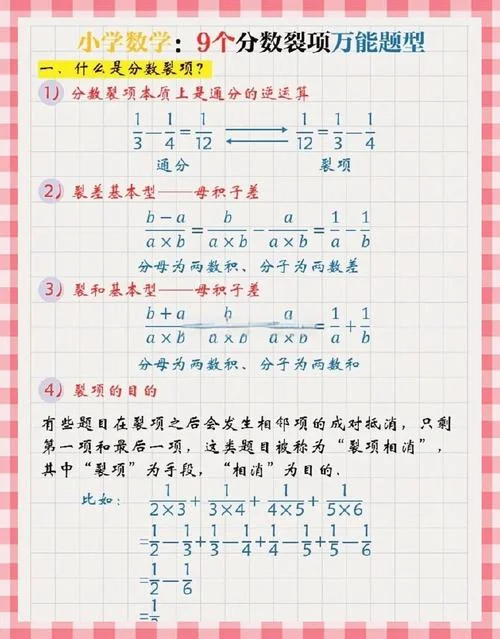 小学数学：9个分数裂项万能题型
一、什么是分数裂项？
1）分数裂项本质上是通分的逆运算
1/3−1/4=1/12 ⇄ 1/12=1/3−1/4
通分 裂项
2）裂差基本型——母积子差
(b−a)/(a×b)=b/(a×b)−a/(a×b)=1/a−1/b
分母为两数积、分子为两数差
3）裂和基本型——母积子差
(b+a)/(a×b) b/(a×b) a/(a×b)=1/a+1/b
分母为两数积、分子为两数和
4）裂项的目的
有些题目在裂项之后会发生相邻项的成对抵消，只剩
第一项和最后一项，这类题目被称为“裂项相消”，
其中“裂项”为手段，“相消”为目的.
比如：1/(2×3)+1/(3×4)+1/(4×5)+1/(5×6)
=1/2−1/3+1/3−1/4+1/4−1/5+1/5−1/6
=1/2−1/6
=